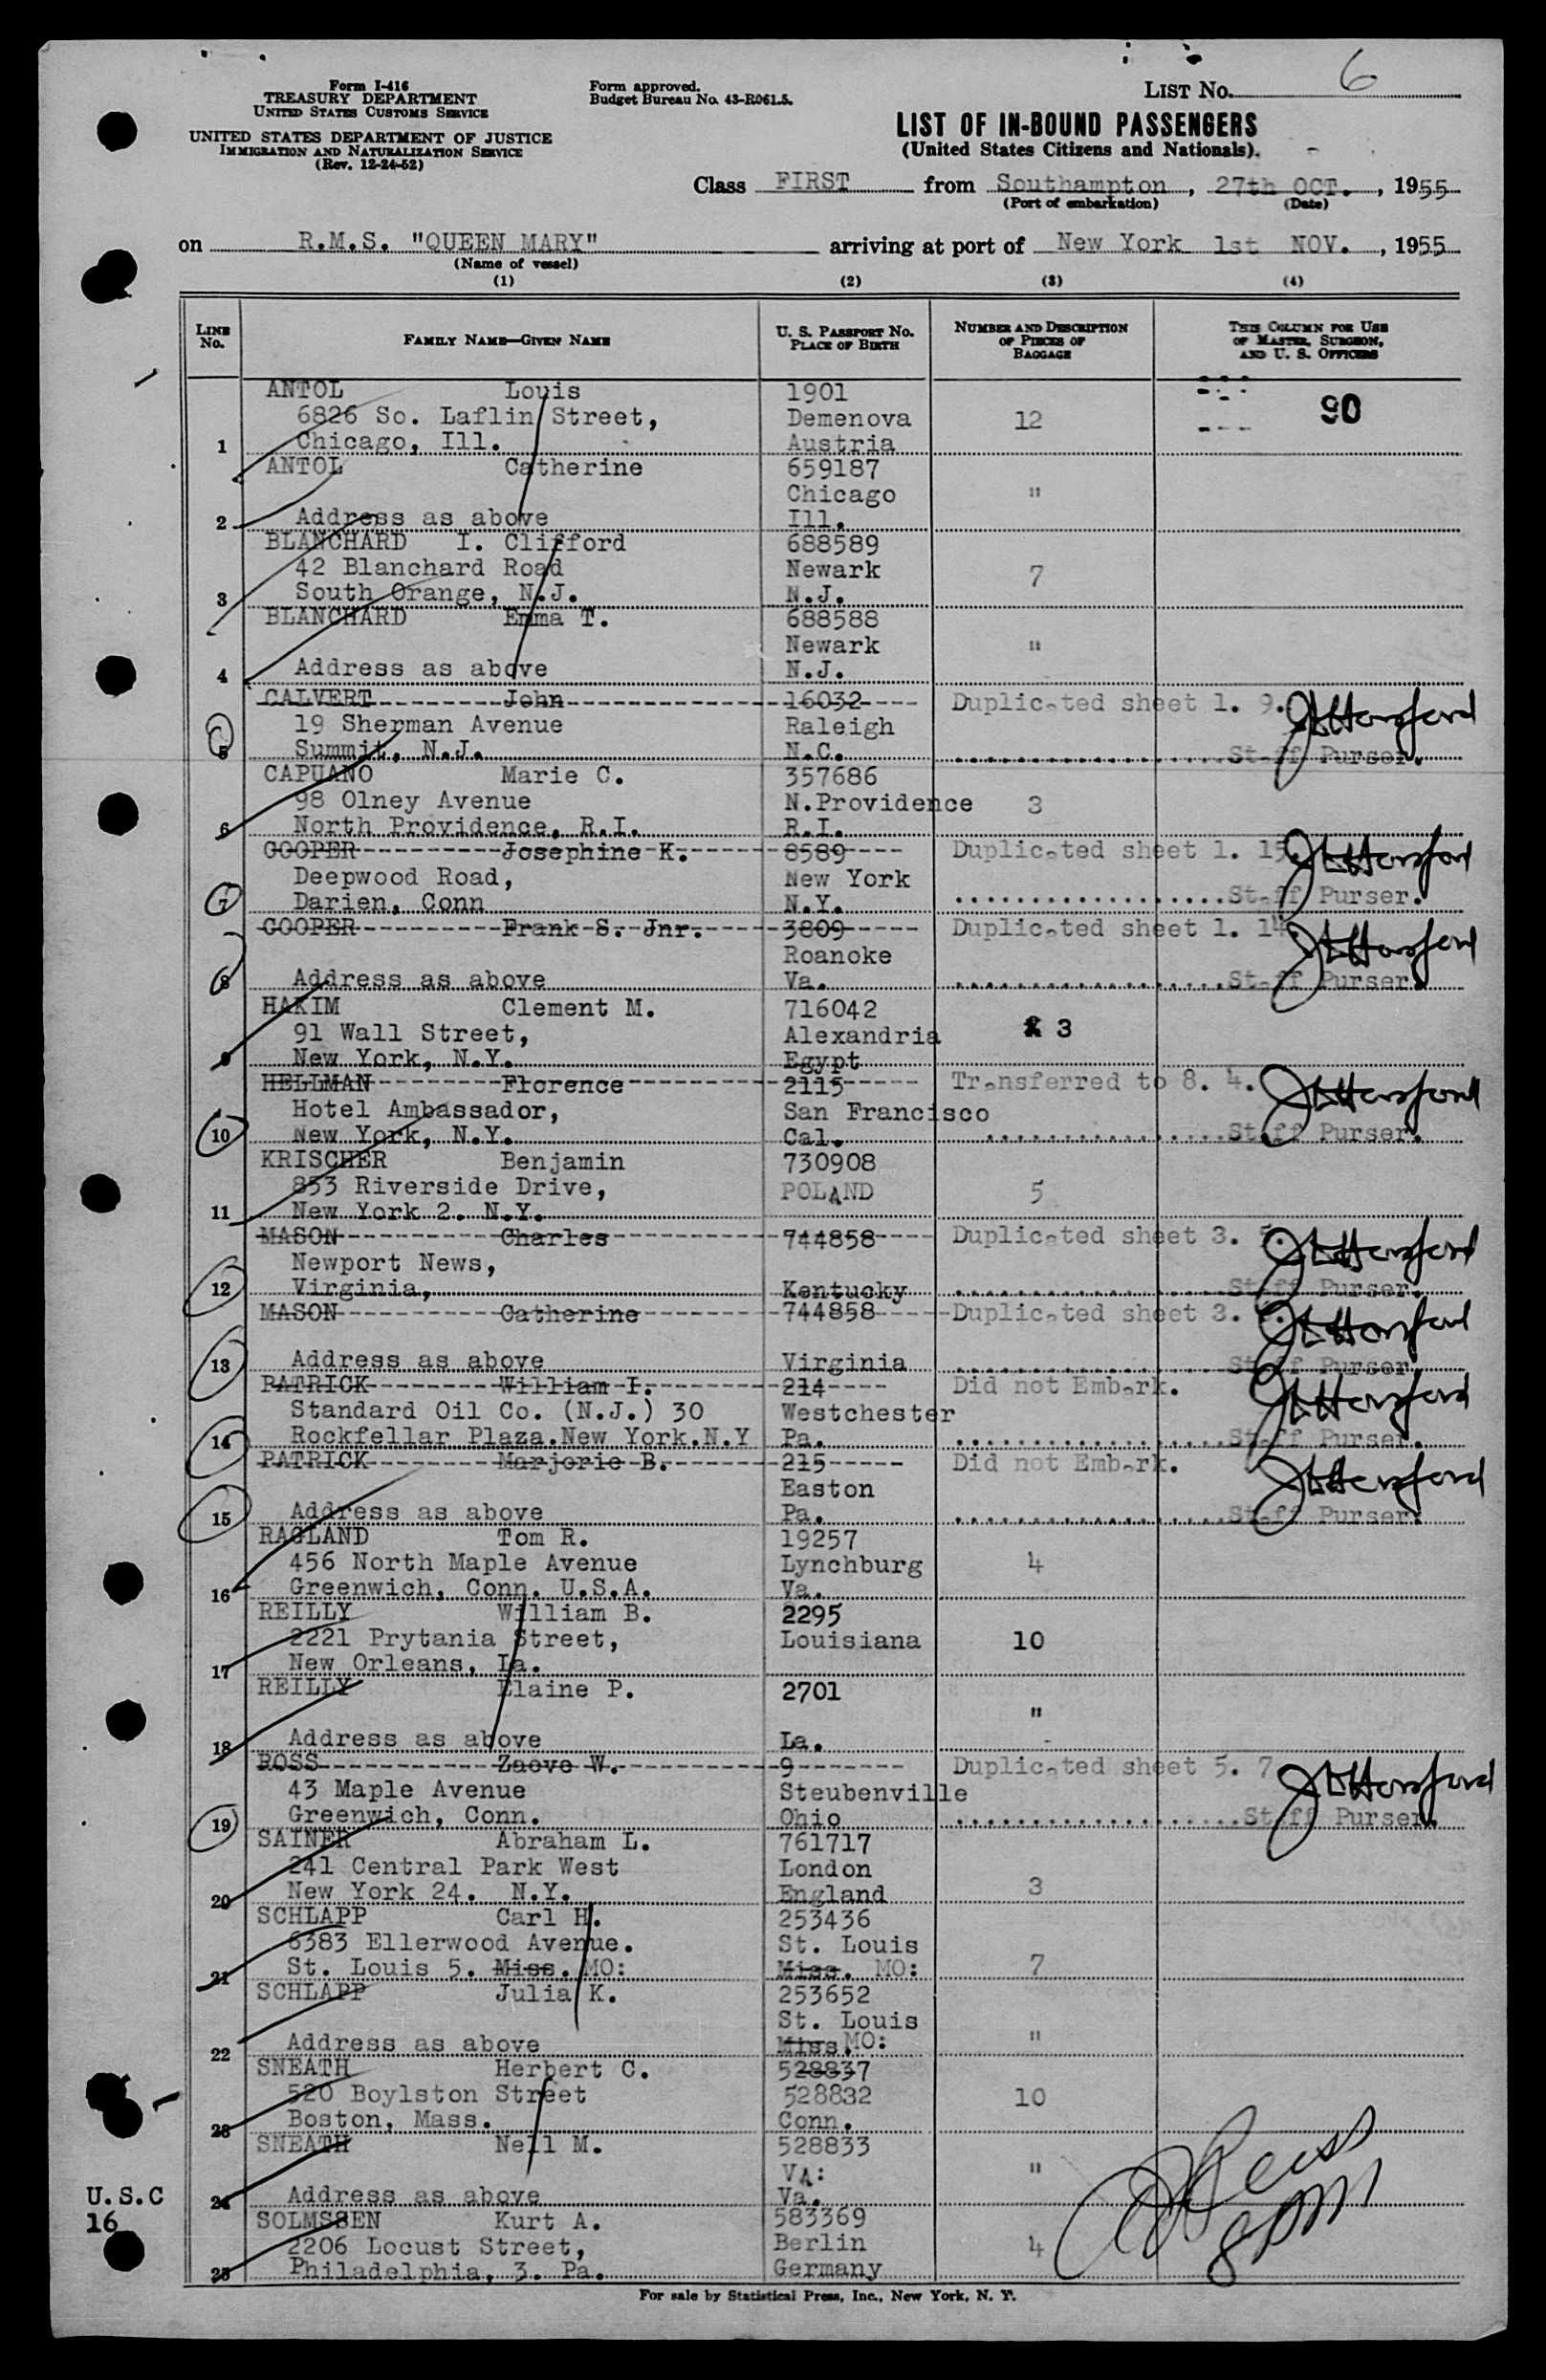 Form I-416
TREASURY DEPARTMENT
UNITED STATES CUSTOMS SERVICE
UNITED STATES DEPARTMENT OF JUSTICE
IMMIGRATION AND NATURALIZATION SERVICE
(Rev. 12-24-52)
Form approved.
Budget Bureau No. 43-R061.5.
LIST No. 6
LIST OF IN-BOUND PASSENGERS
(United States Citizens and Nationals).
Class FIRST from Southampton, 27th OCT., 1955
(Port of embarkation) (Date)
on R.M.S. "QUEEN MARY" arriving at port of New York 1st NOV., 1955
(Name of vessel)
(1) (2) (3) (4)
LINE No. FAMILY NAME—GIVEN NAME U. S. PASSPORT No. PLACE OF BIRTH NUMBER AND DESCRIPTION OF PIECES OF BAGGAGE THIS COLUMN FOR USE OF MASTER, SURGEON, AND U. S. OFFICERS
ANTOL Louis 1901
6826 So. Laflin Street, Demenova 12 90
1 Chicago, Ill. Austria
ANTOL Catherine 659187
Chicago "
2 Address as above Ill.
BLANCHARD I. Clifford 688589
42 Blanchard Road Newark 7
3 South Orange, N.J. N.J.
BLANCHARD Emma T. 688588
Newark "
4 Address as above N.J.
CALVERT John 16032 Duplicated sheet 1. 9.
19 Sherman Avenue Raleigh
5 Summit, N.J. N.C. Staff Purser.
CAPUANO Marie C. 357686
98 Olney Avenue N.Providence 3
6 North Providence, R.I. R.I.
COOPER Josephine K. 8589 Duplicated sheet 1. 15.
Deepwood Road, New York
7 Darien, Conn N.Y. Staff Purser.
COOPER Frank S. Jnr. 3809 Duplicated sheet 1. 14
Roanoke
8 Address as above Va. Staff Purser.
HAKIM Clement M. 716042
91 Wall Street, Alexandria 3
9 New York, N.Y. Egypt
HELLMAN Florence 2115 Transferred to 8. 4.
Hotel Ambassador, San Francisco
10 New York, N.Y. Cal. Staff Purser.
KRISCHER Benjamin 730908
853 Riverside Drive, POLAND 5
11 New York 2. N.Y.
MASON Charles 744858 Duplicated sheet 3.
Newport News,
12 Virginia, Kentucky Staff Purser.
MASON Catherine 744858 Duplicated sheet 3.
13 Address as above Virginia Staff Purser.
PATRICK William I. 214 Did not Embark.
Standard Oil Co. (N.J.) 30 Westchester
14 Rockfellar Plaza.New York.N.Y Pa. Staff Purser.
PATRICK Marjorie B. 215 Did not Embark.
Easton
15 Address as above Pa. Staff Purser.
RAGLAND Tom R. 19257
456 North Maple Avenue Lynchburg 4
16 Greenwich, Conn. U.S.A. Va.
REILLY William B. 2295
2221 Prytania Street, Louisiana 10
17 New Orleans, La.
REILLY Elaine P. 2701
"
18 Address as above La.
ROSS Zaove W. 9 Duplicated sheet 5. 7
43 Maple Avenue Steubenville
19 Greenwich, Conn. Ohio Staff Purser.
SAINER Abraham L. 761717
241 Central Park West London
20 New York 24. N.Y. England 3
SCHLAPP Carl H. 253436
6383 Ellerwood Avenue. St. Louis
21 St. Louis 5. Miss. MO: Miss. MO: 7
SCHLAPP Julia K. 253652
St. Louis
22 Address as above Miss. MO: "
SNEATH Herbert C. 528837
520 Boylston Street 528832 10
23 Boston, Mass. Conn.
SNEATH Nell M. 528833
VA: "
24 Address as above Va.
SOLMSSEN Kurt A. 583369
2206 Locust Street, Berlin 4
25 Philadelphia, 3. Pa. Germany
U.S.C
16
For sale by Statistical Press, Inc., New York, N. Y.